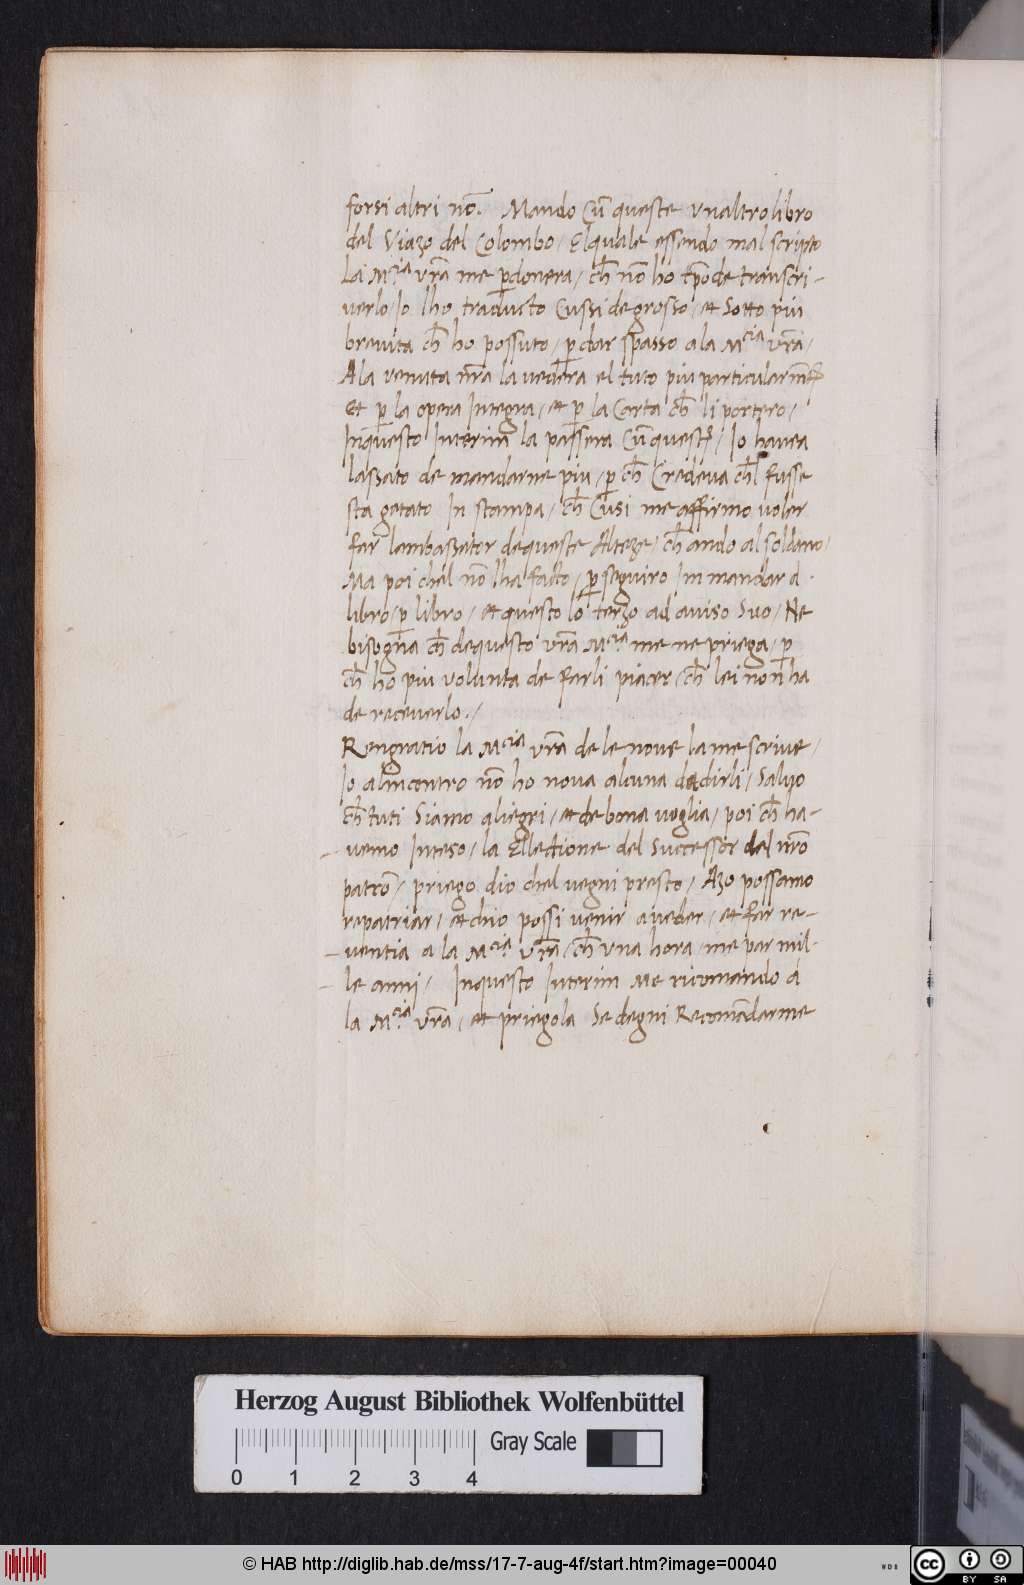 forsi altri nõ. Mando Cũ queste vnaltro libro
del Viazo del Colombo / Elquale essendo mal scripto
La M.cia vr̃a me ꝑdonera / ch̃ nõ ho tp̃o de transcri-
verlo / Io lho traducto Cussi de grosso / et Sotto piu
breuita ch̃ ho possuto / ꝑ dar spasso a la M.cia vr̃a /
A la venuta nr̃a la uedera el tuto piu particularm̃
et ꝑ la opera Integra / et ꝑ la Carta ch̃ li portero /
Inquesto Interim la passera Cũ quest / Io hauea
lassato de mandarne piu / ꝑ ch̃ Credeua ch̃l fusse
sta getato In stampa / ch̃ Cusi me affirmo voler
far lambassator de queste Alteze / ch̃ ando al soldano /
Ma poi chel nõ lha facto / ꝑseguiro In mandar d.
libro / ꝑ libro / et questo lo terzo ad auiso Suo / Ne
bisogna ch̃ de questo vr̃a M.cia me ne priega / ꝑ
ch̃ ho piu volunta de farli piacer / ch̃ lei non ha
de receuerlo. /
Rengratio la M.cia vr̃a de le noue la me scriue /
Io alincontro nõ ho noua alcuna dadirli / Saluo
ch̃ tuti Siamo aliegri / et de bona uoglia / poi ch̃ ha-
uemo Inteso / la Ellectione del Successor del nr̃o
patrõ / priego dio chel uegni presto / Azo possamo
repatriar / et chio possi uenir a ueder / et far re-
uerentia a la M.cia vr̃a / ch̃ vna hora / me par mil-
le anni / Inquesto Interim Me ricomando a
la M.cia vr̃a / et priegola Se degni Recomãdarme
Herzog August Bibliothek Wolfenbüttel
Gray Scale
0 1 2 3 4
© HAB http://diglib.hab.de/mss/17-7-aug-4f/start.htm?image=00040
cc BY SA